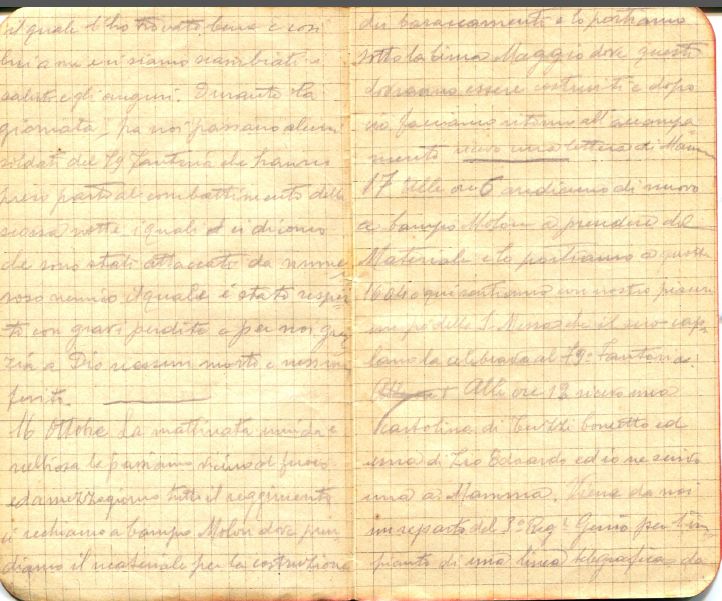 il quale l'ho trovato bene e così
lui a me e ci siamo scambiati i
saluti e gli auguri. Durante la
giornata, fra noi passano alcuni
soldati del 79 Fanteria che hanno
preso parte al combattimento della
scorsa notte, i quali ci dicono
che sono stati attaccato da nume
roso nemico il quale è stato respin
to con gravi perdite e per noi gra
zia a Dio nessun morto e nessun
ferito.
16 Ottobre La mattinata umida e
nebbiosa la passiamo vicino al fuoco
ed a mezzogiorno tutto il reggimento
ci rechiamo a Campo Molon dove pren
diamo il materiale per la costruzione
dei baraccamenti e lo portiamo
sotto la Cima Maggio dove questi
dovranno essere costruiti e dopo
ciò facciamo ritorno all'accampa
mento ricevo una lettera di Mamma
17 Alle ore 6 andiamo di nuovo
a Campo Molon a prendere del
Materiale e lo portiamo a quota
1600 e qui sentiamo con nostro
un pò della S. Messa che il suo cap
lano la celebrada al 79º Fanteria.
Alle ore 12 ricevo una
Cartolina di bonetto ed
una di Zio Edoardo ed io ne scrivo
una a Mamma. Viene da noi
un reparto del 3º Regt Genio per l'im
pianto di una linea telegrafica da